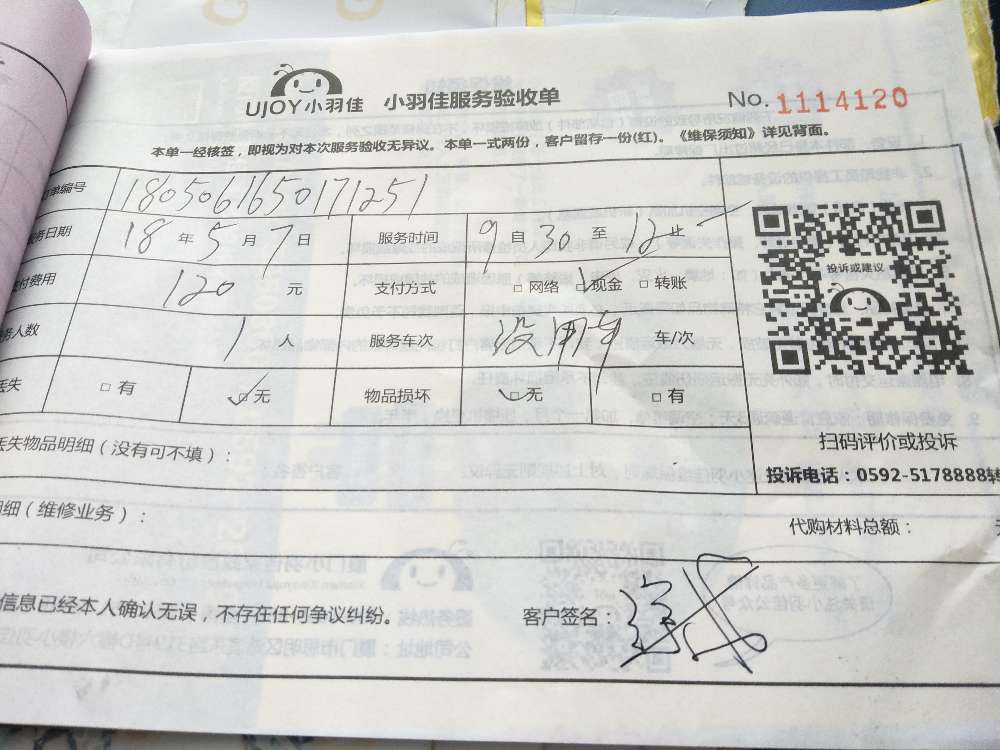 UJOY小羽佳 小羽佳服务验收单 No. 1114120
本单一经核签，即视为对本次服务验收无异议。本单一式两份，客户留存一份(红)。《维保须知》详见背面。
单编号 180506165017 1251
务日期 18 年 5 月 7 日 服务时间 9 自 30 至 12 止
付费用 120 元 支付方式 □ 网络 ☑现金 □ 转账
务人数 1 人 服务车次 没用车 车/次
丢失 □ 有 ☑无 物品损坏 ☑无 □ 有
投诉或建议
扫码评价或投诉
投诉电话：0592-5178888转
丢失物品明细（没有可不填）：
明细（维修业务）： 代购材料总额：
信息已经本人确认无误，不存在任何争议纠纷。 客户签名：